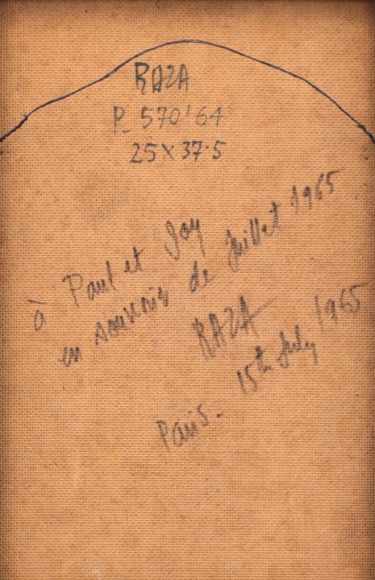 RAZA
P_570'64
25 x 37·5
à Paul et Joy
en souvenir de Juillet 1965
RAZA
Paris - 15th July, 1965